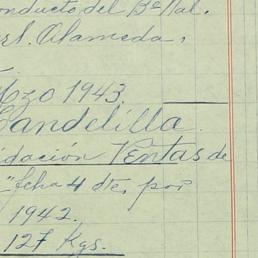 conducto del Bº Nal.
Alameda,
Mzo 1943.
Candelilla.
idación Ventas de
" fcha 4 dte, por
1942.
127 Kgs.